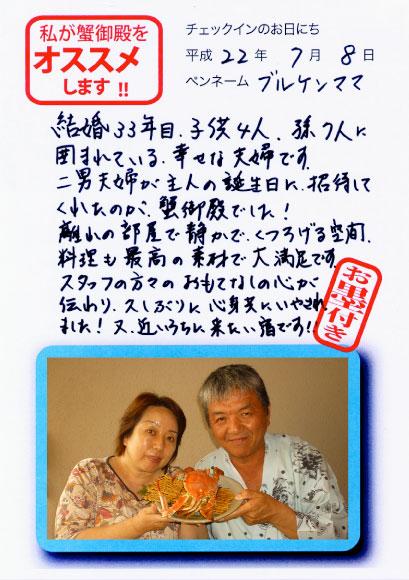 私が蟹御殿を
オススメ
します!!
チェックインのお日にち
平成 22 年 7 月 8 日
ペンネーム ブルケンママ
結婚33年目、子供4人、孫7人に
囲まれている、幸せな夫婦です。
二男夫婦が主人の誕生日に、招待して
くれたのが、蟹御殿でした!
離れの部屋で静かで、くつろげる空間、
料理も最高の素材で大満足です。
スタッフの方々のおもてなしの心が
伝わり、久しぶりに心身共にいやされ
ました!又、近いうちに来たい宿です!!
お墨付き